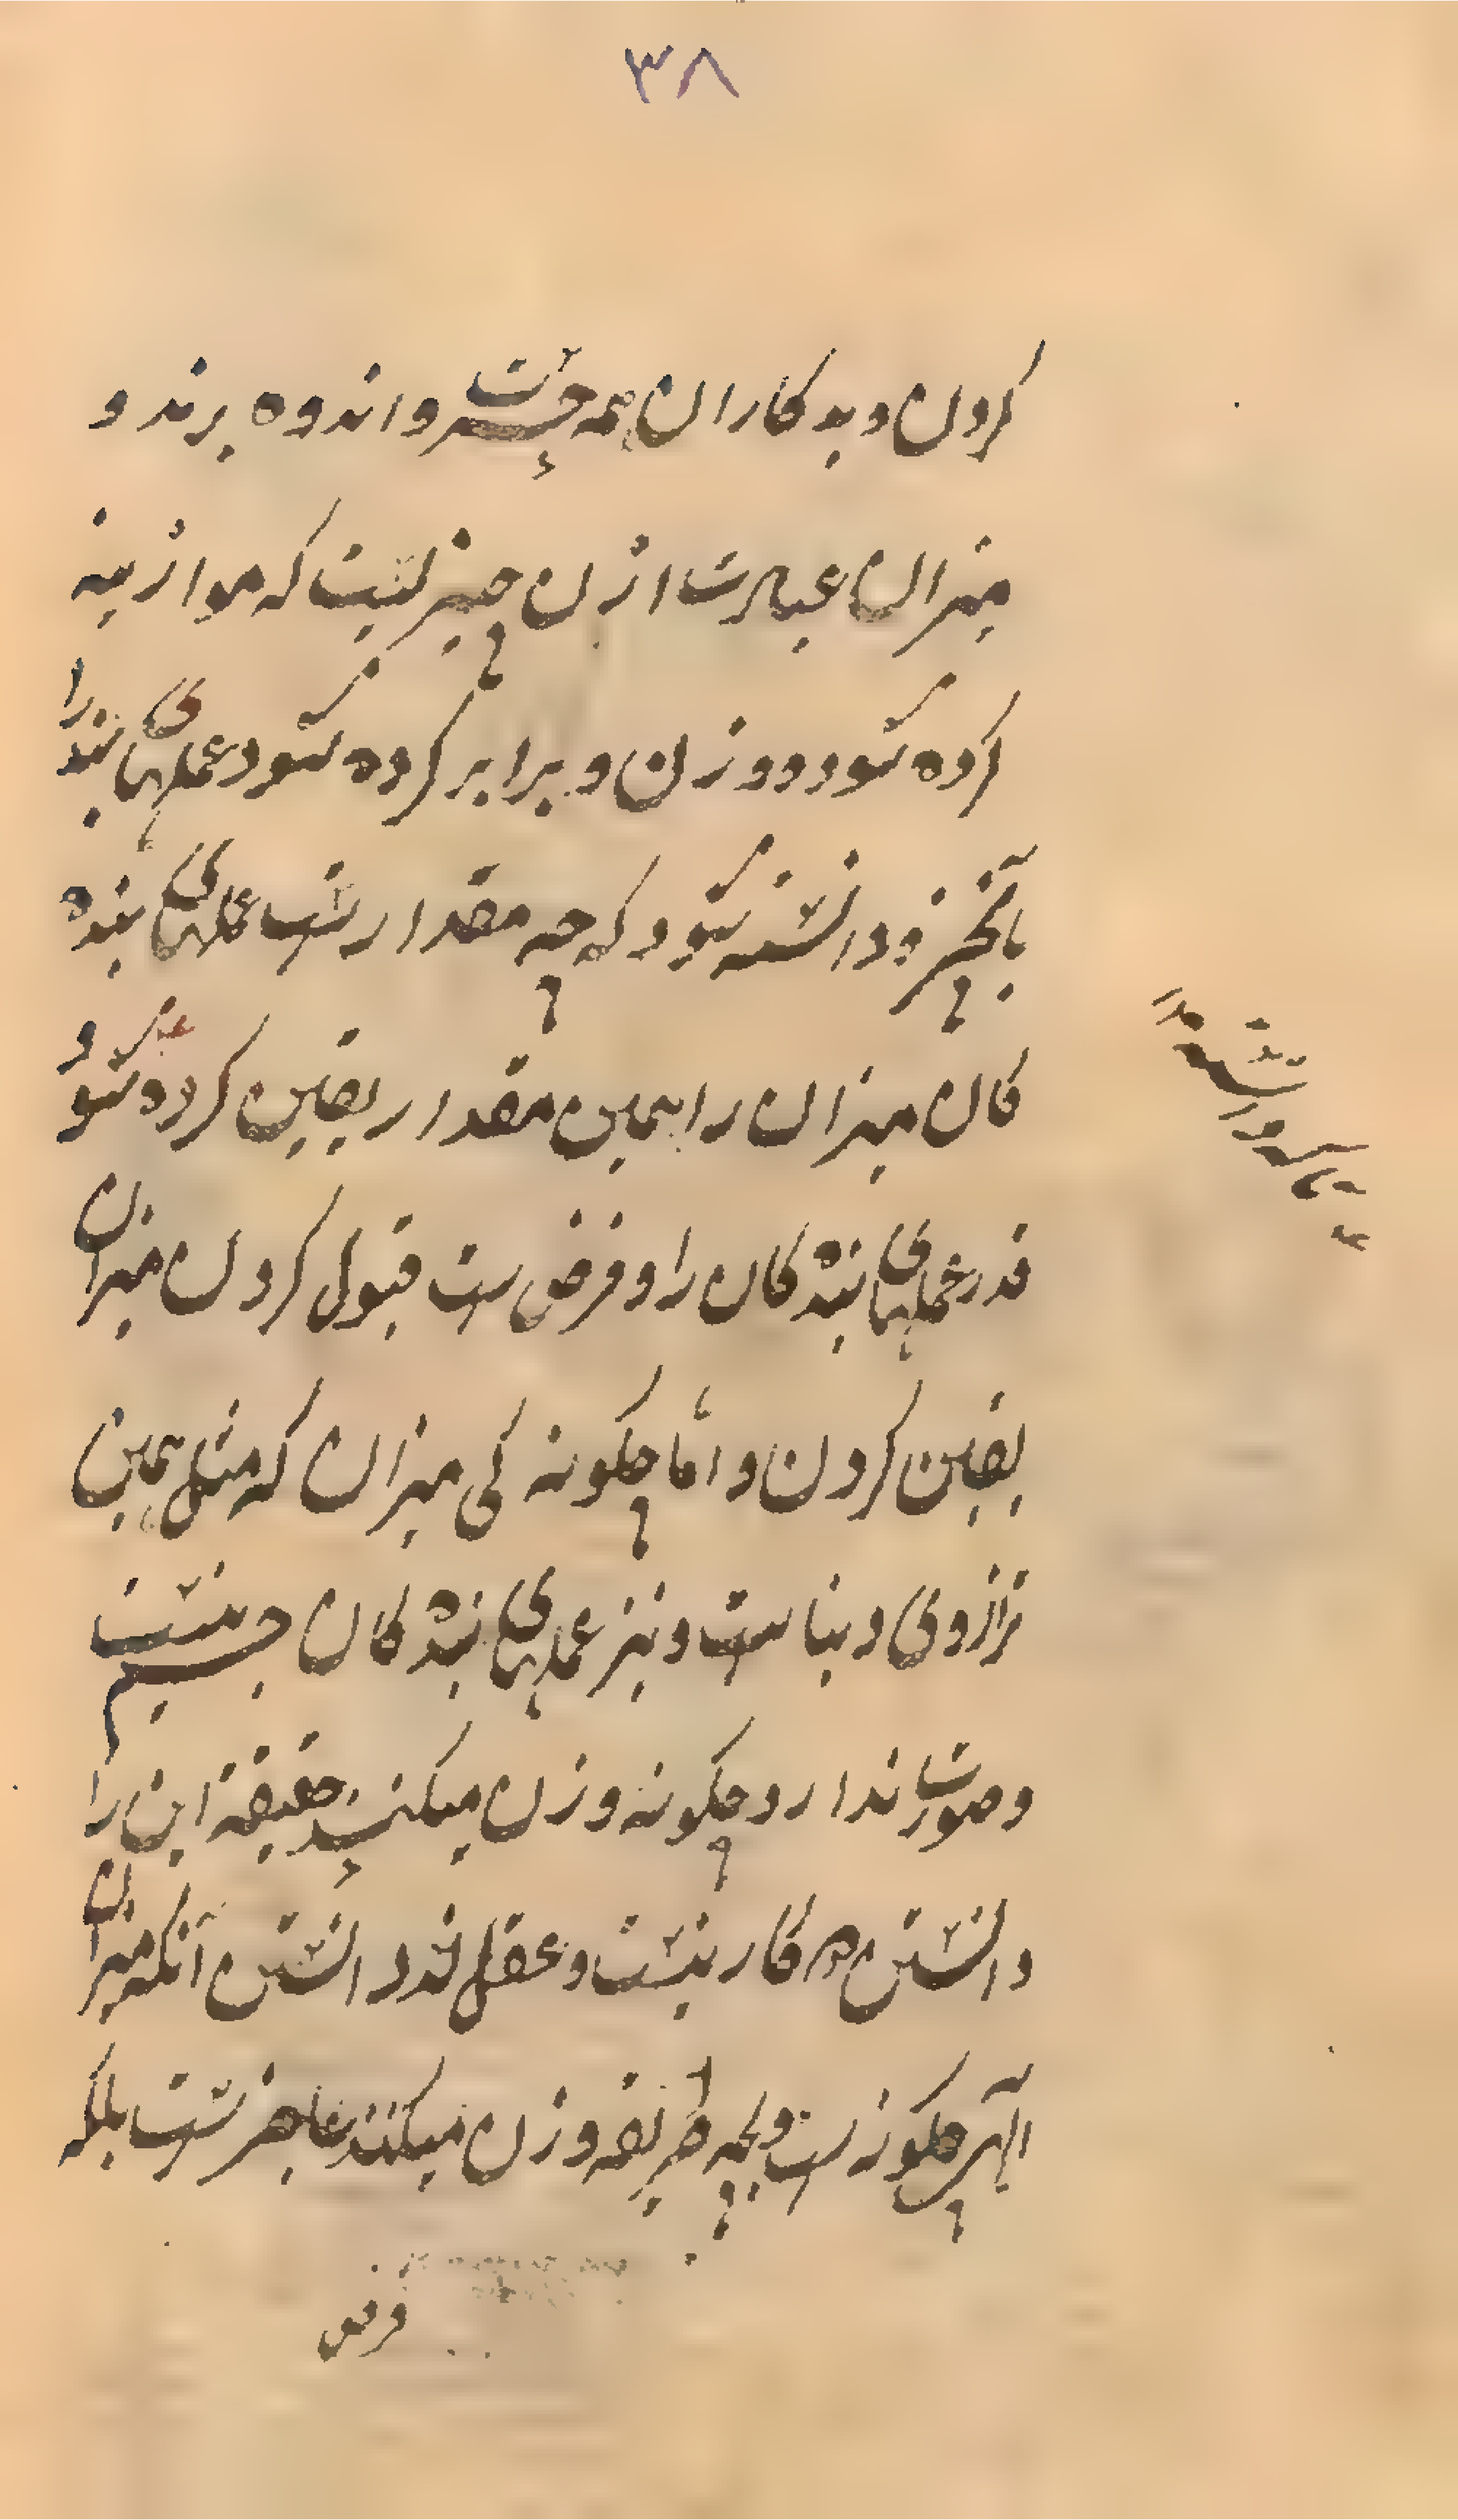 ۳۸
کردن و بدکاران همه حسرت و اندوه برند و
میزان عبارت ازان چیزیست که موازینه
کرده شود و وزن و برابر کرده شود عملهای بنده را
بآنچیز و دانسته شود که چه مقدارست عملهای بنده
کان میزان را همین مقدار یقین کرده شود
قدر عملهای بنده کان را و فرض ست قبول کردن میزان
یقین کردن و اما چکونه کی میزان که مثل همین
ترازوی دنیا ست و نیز عملهای بنده کان جسم نیست
و صورت ندارد و چکونه وزن میکنند حقیقة این را
دانستن در کار نیست و عقل در دانستن آنکه میزان
الهی چکونه ست و بچه طریقه وزن میکنند عاجز ست بلکه
فرض